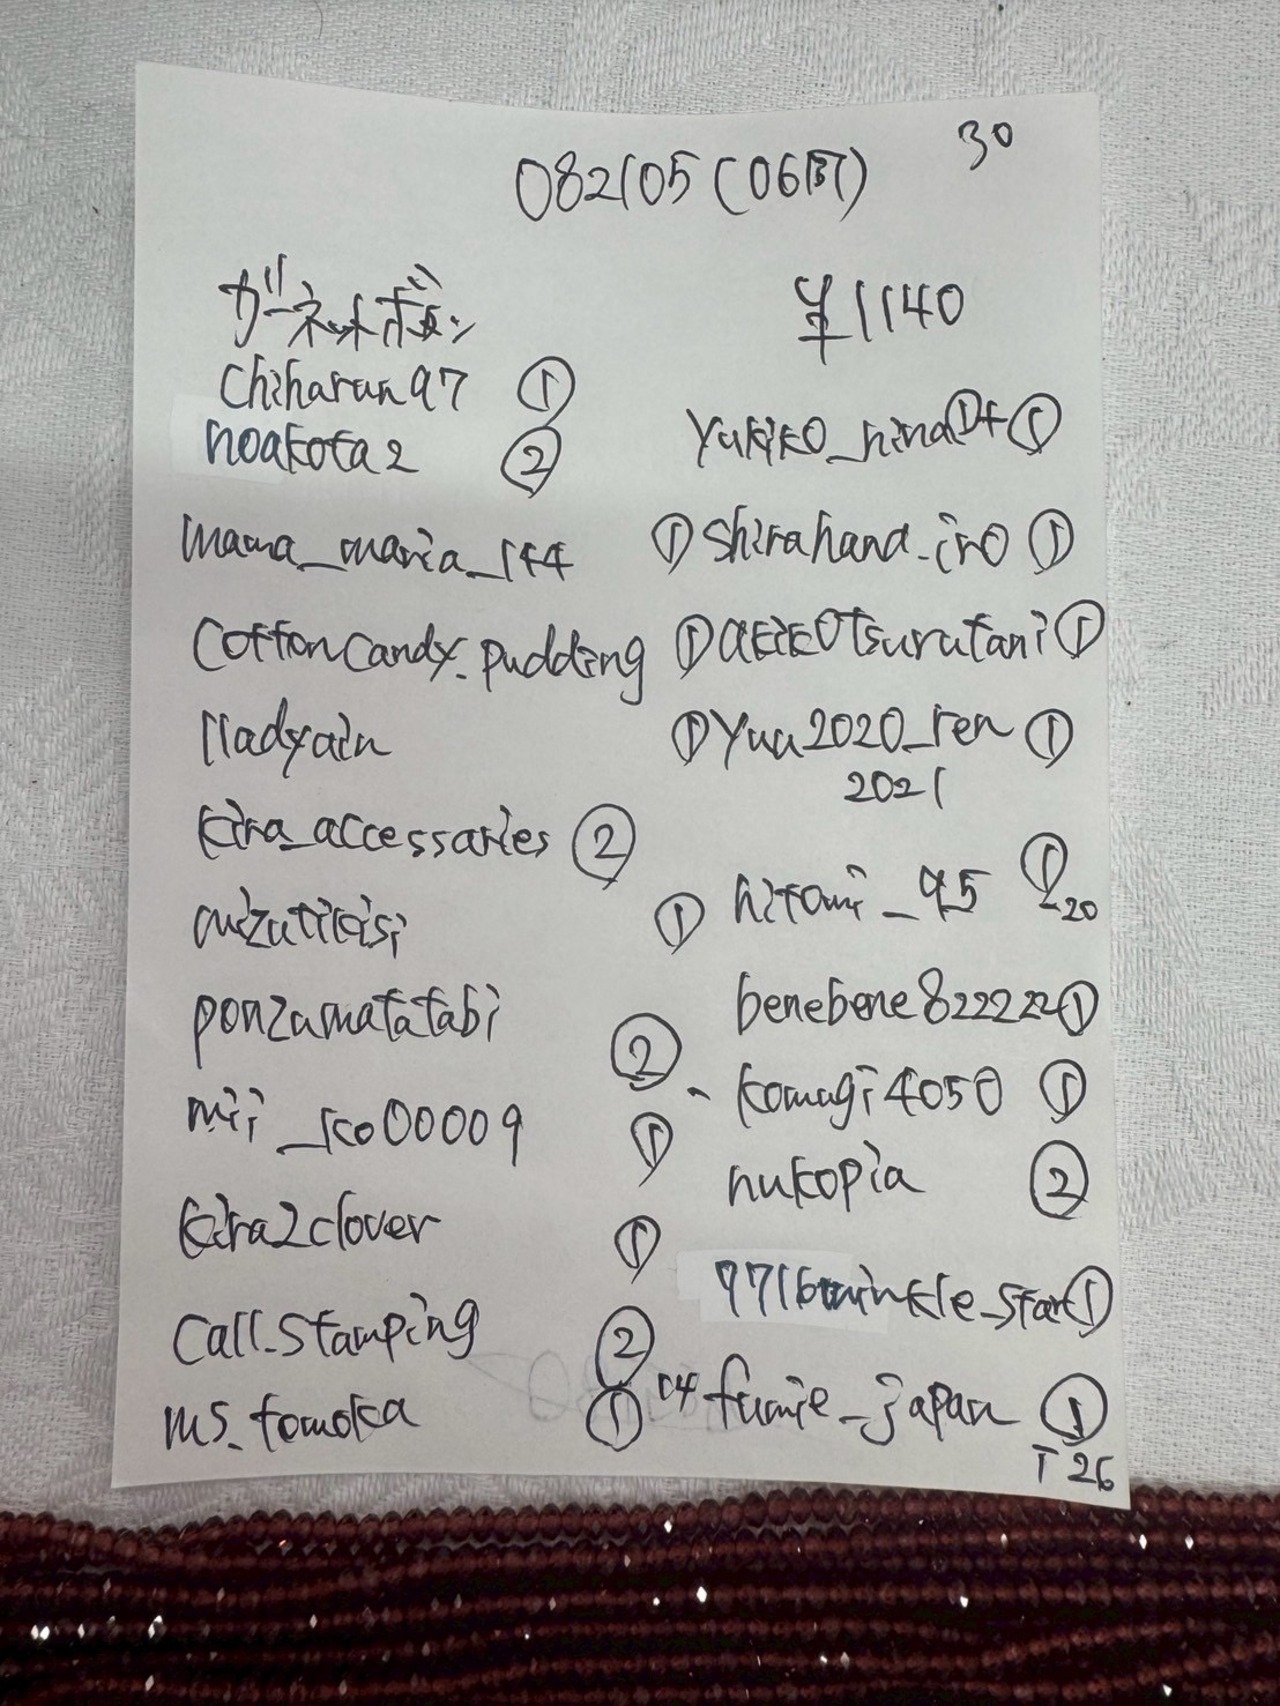 30
082105 (06町)
ガーネットボタン
¥1140
chiharun97 ①
noakota2 ②
mama_maria_144 ①
Cottoncandy_pudding ①
lladyain ①
kira_accessaries ②
mizutikisi ①
ponzamatatabi ②
mii_ko00009 ①
kira2clover ①
Call_stamping ②
ms_tomoka ① 14
yukiko_hina①+①
shirahana_iro ①
akikotsurutani ①
yuu2020_ren ①
2021
hitomi_95 ①
20
benebene822222①
komugi4050 ①
nukopia ②
7716twinkle_star①
fumie_japan ①
T26